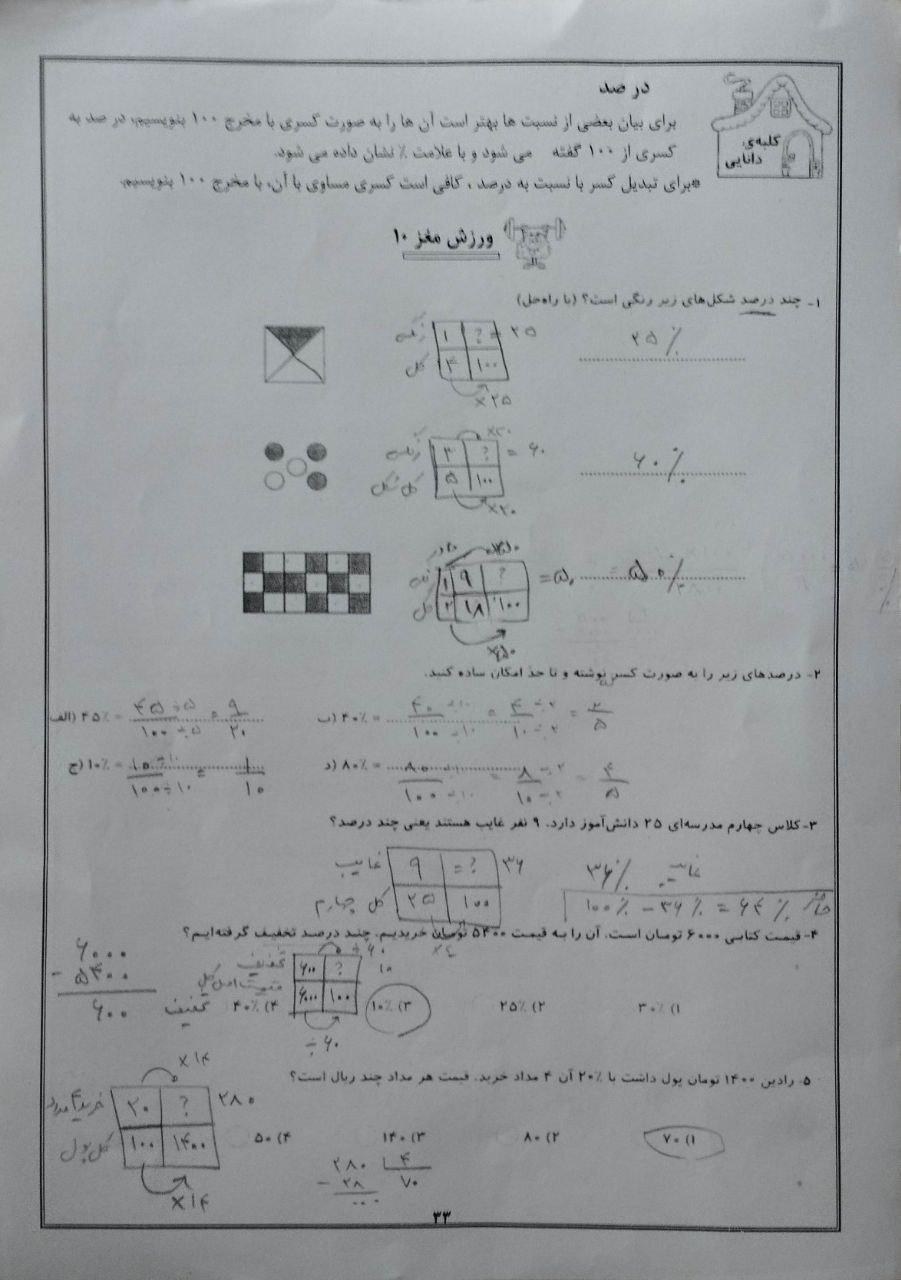 در صد
کلبه‌ی
دانایی
برای بیان بعضی از نسبت ها بهتر است آن ها را به صورت کسری با مخرج ۱۰۰ بنویسیم، در صد به
کسری از ۱۰۰ گفته می شود و با علامت ٪ نشان داده می شود.
*برای تبدیل کسر با نسبت به درصد ، کافی است کسری مساوی با آن، با مخرج ۱۰۰ بنویسیم.
ورزش مغز ۱۰
۱- چند درصد شکل‌های زیر رنگی است؟ (با راه‌حل)
رنگی ۱ ? = ۲۵ ۲۵٪
کل ۴ ۱۰۰
×۲۵
×۲۰
رنگی ۳ ? = ۶۰ ۶۰٪
کل شکل ۵ ۱۰۰
×۲۰
۱ ۹ ? = ۵۰ ۵۰٪
کل ۲ ۱۸ ۱۰۰
×۵۰
۲- درصدهای زیر را به صورت کسر نوشته و تا حد امکان ساده کنید.
الف) ۴۵٪ = ۴۵÷۵ / ۱۰۰÷۵ = ۹/۲۰
ب) ۴۰٪ = ۴۰÷۱۰ / ۱۰۰÷۱۰ = ۴÷۲ / ۱۰÷۲ = ۲/۵
ج) ۱۰٪ = ۱۰÷۱۰ / ۱۰۰÷۱۰ = ۱/۱۰
د) ۸۰٪ = ۸۰÷۱۰ / ۱۰۰÷۱۰ = ۸÷۲ / ۱۰÷۲ = ۴/۵
۳- کلاس چهارم مدرسه‌ای ۲۵ دانش‌آموز دارد. ۹ نفر غایب هستند یعنی چند درصد؟
غایب ۹ =? ۳۶ ۳۶٪ غایب
کل چهارم ۲۵ ۱۰۰
×۴
حاضر ۱۰۰٪ - ۳۶٪ = ۶۴٪
۴- قیمت کتابی ۶۰۰۰ تومان است. آن را به قیمت ۵۴۰۰ تومان خریدیم. چند درصد تخفیف گرفته‌ایم؟
÷۶۰
تخفیف ۶۰۰ ? ۱۰
قیمت اصل کل ۶۰۰۰ ۱۰۰
÷۶۰
۶۰۰۰
- ۵۴۰۰
۶۰۰ تخفیف
۱) ۳۰٪ ۲) ۲۵٪ ۳) ۱۰٪ ۴) ۴۰٪
۵- رادین ۱۴۰۰ تومان پول داشت با ۲۰٪ آن ۴ مداد خرید. قیمت هر مداد چند ریال است؟
×۱۴
خرید ۴ مداد ۲۰ ? ۲۸۰
کل پول ۱۰۰ ۱۴۰۰
×۱۴
۱) ۷۰ ۲) ۸۰ ۳) ۱۴۰ ۴) ۵۰
۲۸۰ ۴
- ۲۸ ۷۰
۰۰۰
۳۳